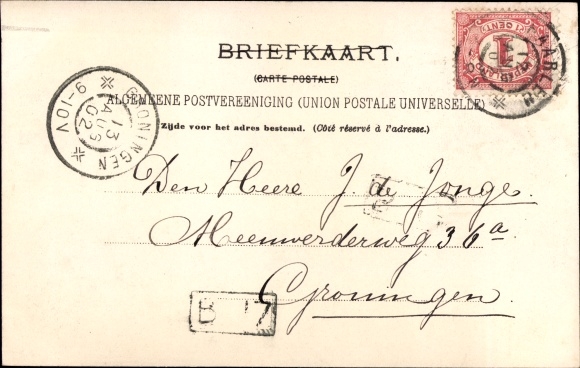 BRIEFKAART.
(CARTE POSTALE)
ALGEMEENE POSTVEREENIGING (UNION POSTALE UNIVERSELLE)
Zijde voor het adres bestemd. (Côté réservé à l'adresse.)
GRONINGEN
13
AUG
02
9-10V
HAARLEM
1
CENT
Den Heere J. de Jonge.
Meeuwerderweg 36a
Groningen.
B 17